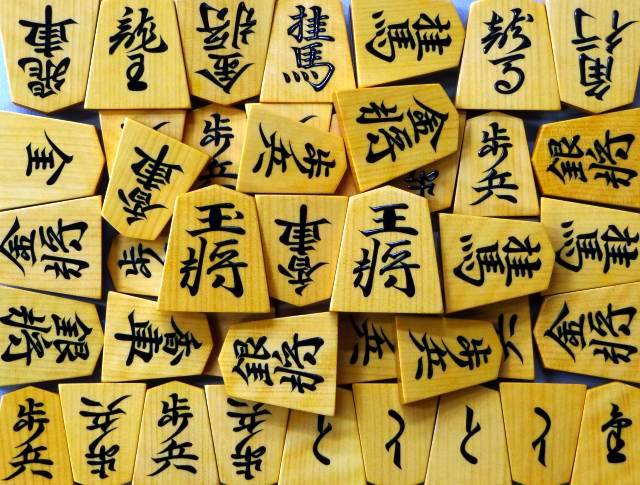 飛車
龍王
金将
桂馬
桂馬
龍馬
角行
全
香車
歩
歩兵
金将
歩兵
銀将
金将
歩
玉将
香車
王将
桂馬
桂馬
銀将
香車
銀将
兵
歩兵
金将
歩兵
歩兵
歩兵
歩兵
と
と
と
と